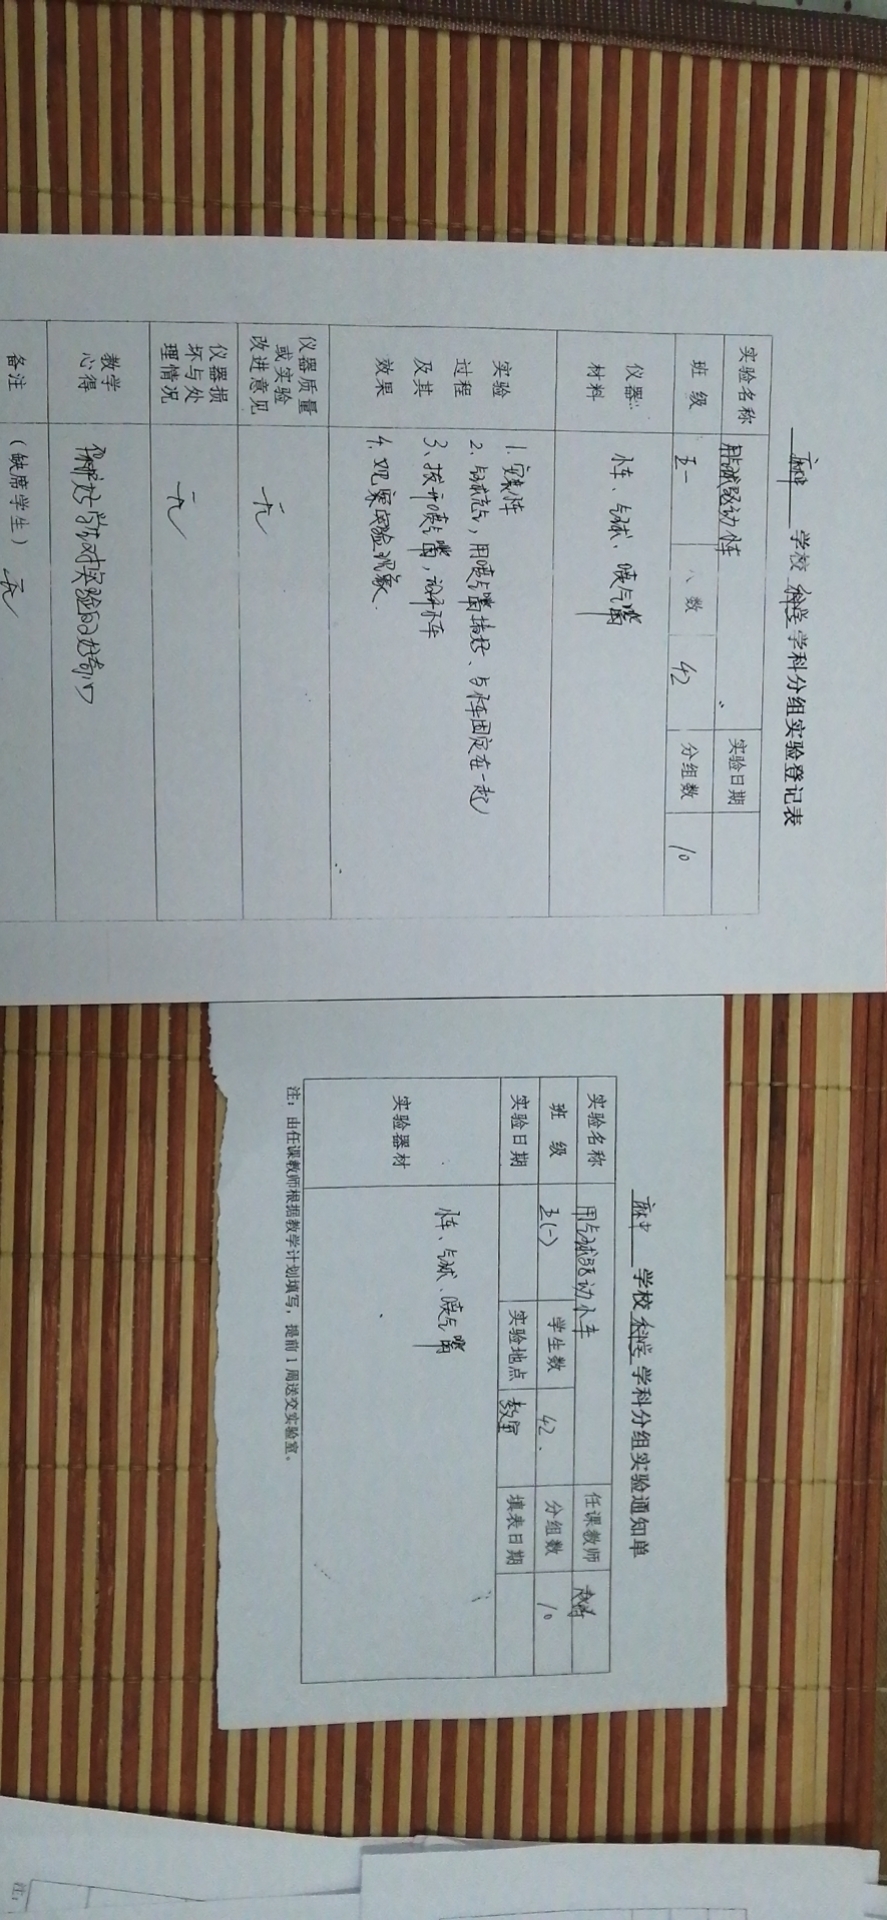 学校 科学 学科分组实验登记表
实验名称 用气球驱动小车 实验日期
班 级 五一 人 数 42 分组数 10
仪器、材料 小车、气球、喷气嘴
实验过程及其效果
1. 安装小车
2、气球充气,用喷气嘴堵好、与小车固定在一起
3、拔开喷气嘴,放开小车
4、观察实验现象.
仪器质量或实验改进意见 无
仪器损坏与处理情况 无
教学心得 保护好学生对实验的好奇心
备注 (缺席学生) 无
学校 科学 学科分组实验通知单
实验名称 用气球驱动小车 任课教师
班 级 五(一) 学生数 42. 分组数 10
实验日期 实验地点 教室 填表日期
实验器材 小车、气球、喷气嘴
注:由任课教师根据教学计划填写,提前1周送交实验室。
注: